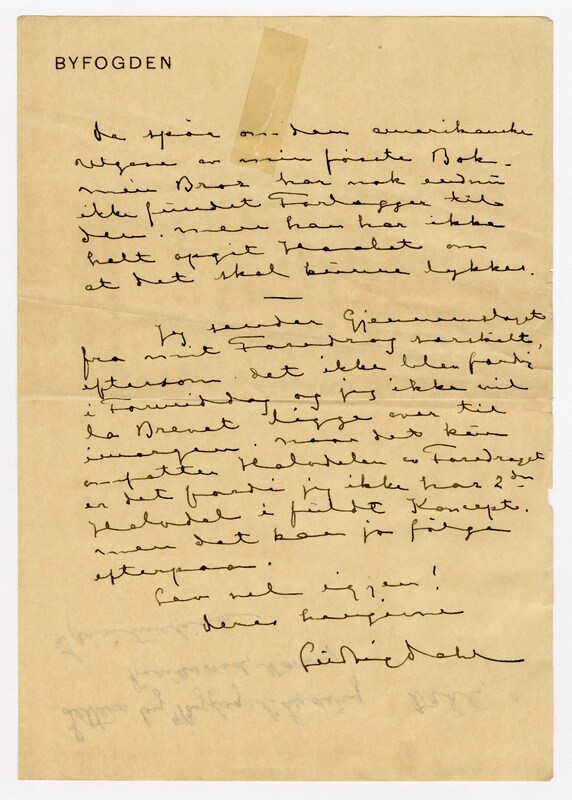 BYFOGDEN
De spør om den amerikanske
utgave av min første Bok –
min Bror har nok endnu
ikke fundet Forlægger til
den. men han har ikke
helt opgit Haabet om
at det skal kunne lykkes.
Jeg sender Gjennemslaget
fra mit Foredrag særskilt,
eftersom det ikke blev færdig
i Formiddag og jeg ikke vil
la Brevet ligge over til
imorgen. naar det kun
omfatter Halvdelen av Foredraget
er det fordi jeg ikke har 2den
Halvdel i fuldt Koncept.
men det kan jo følge
efterpaa.
Lev vel igjen!
Deres hengivne
Ludvig Dahl